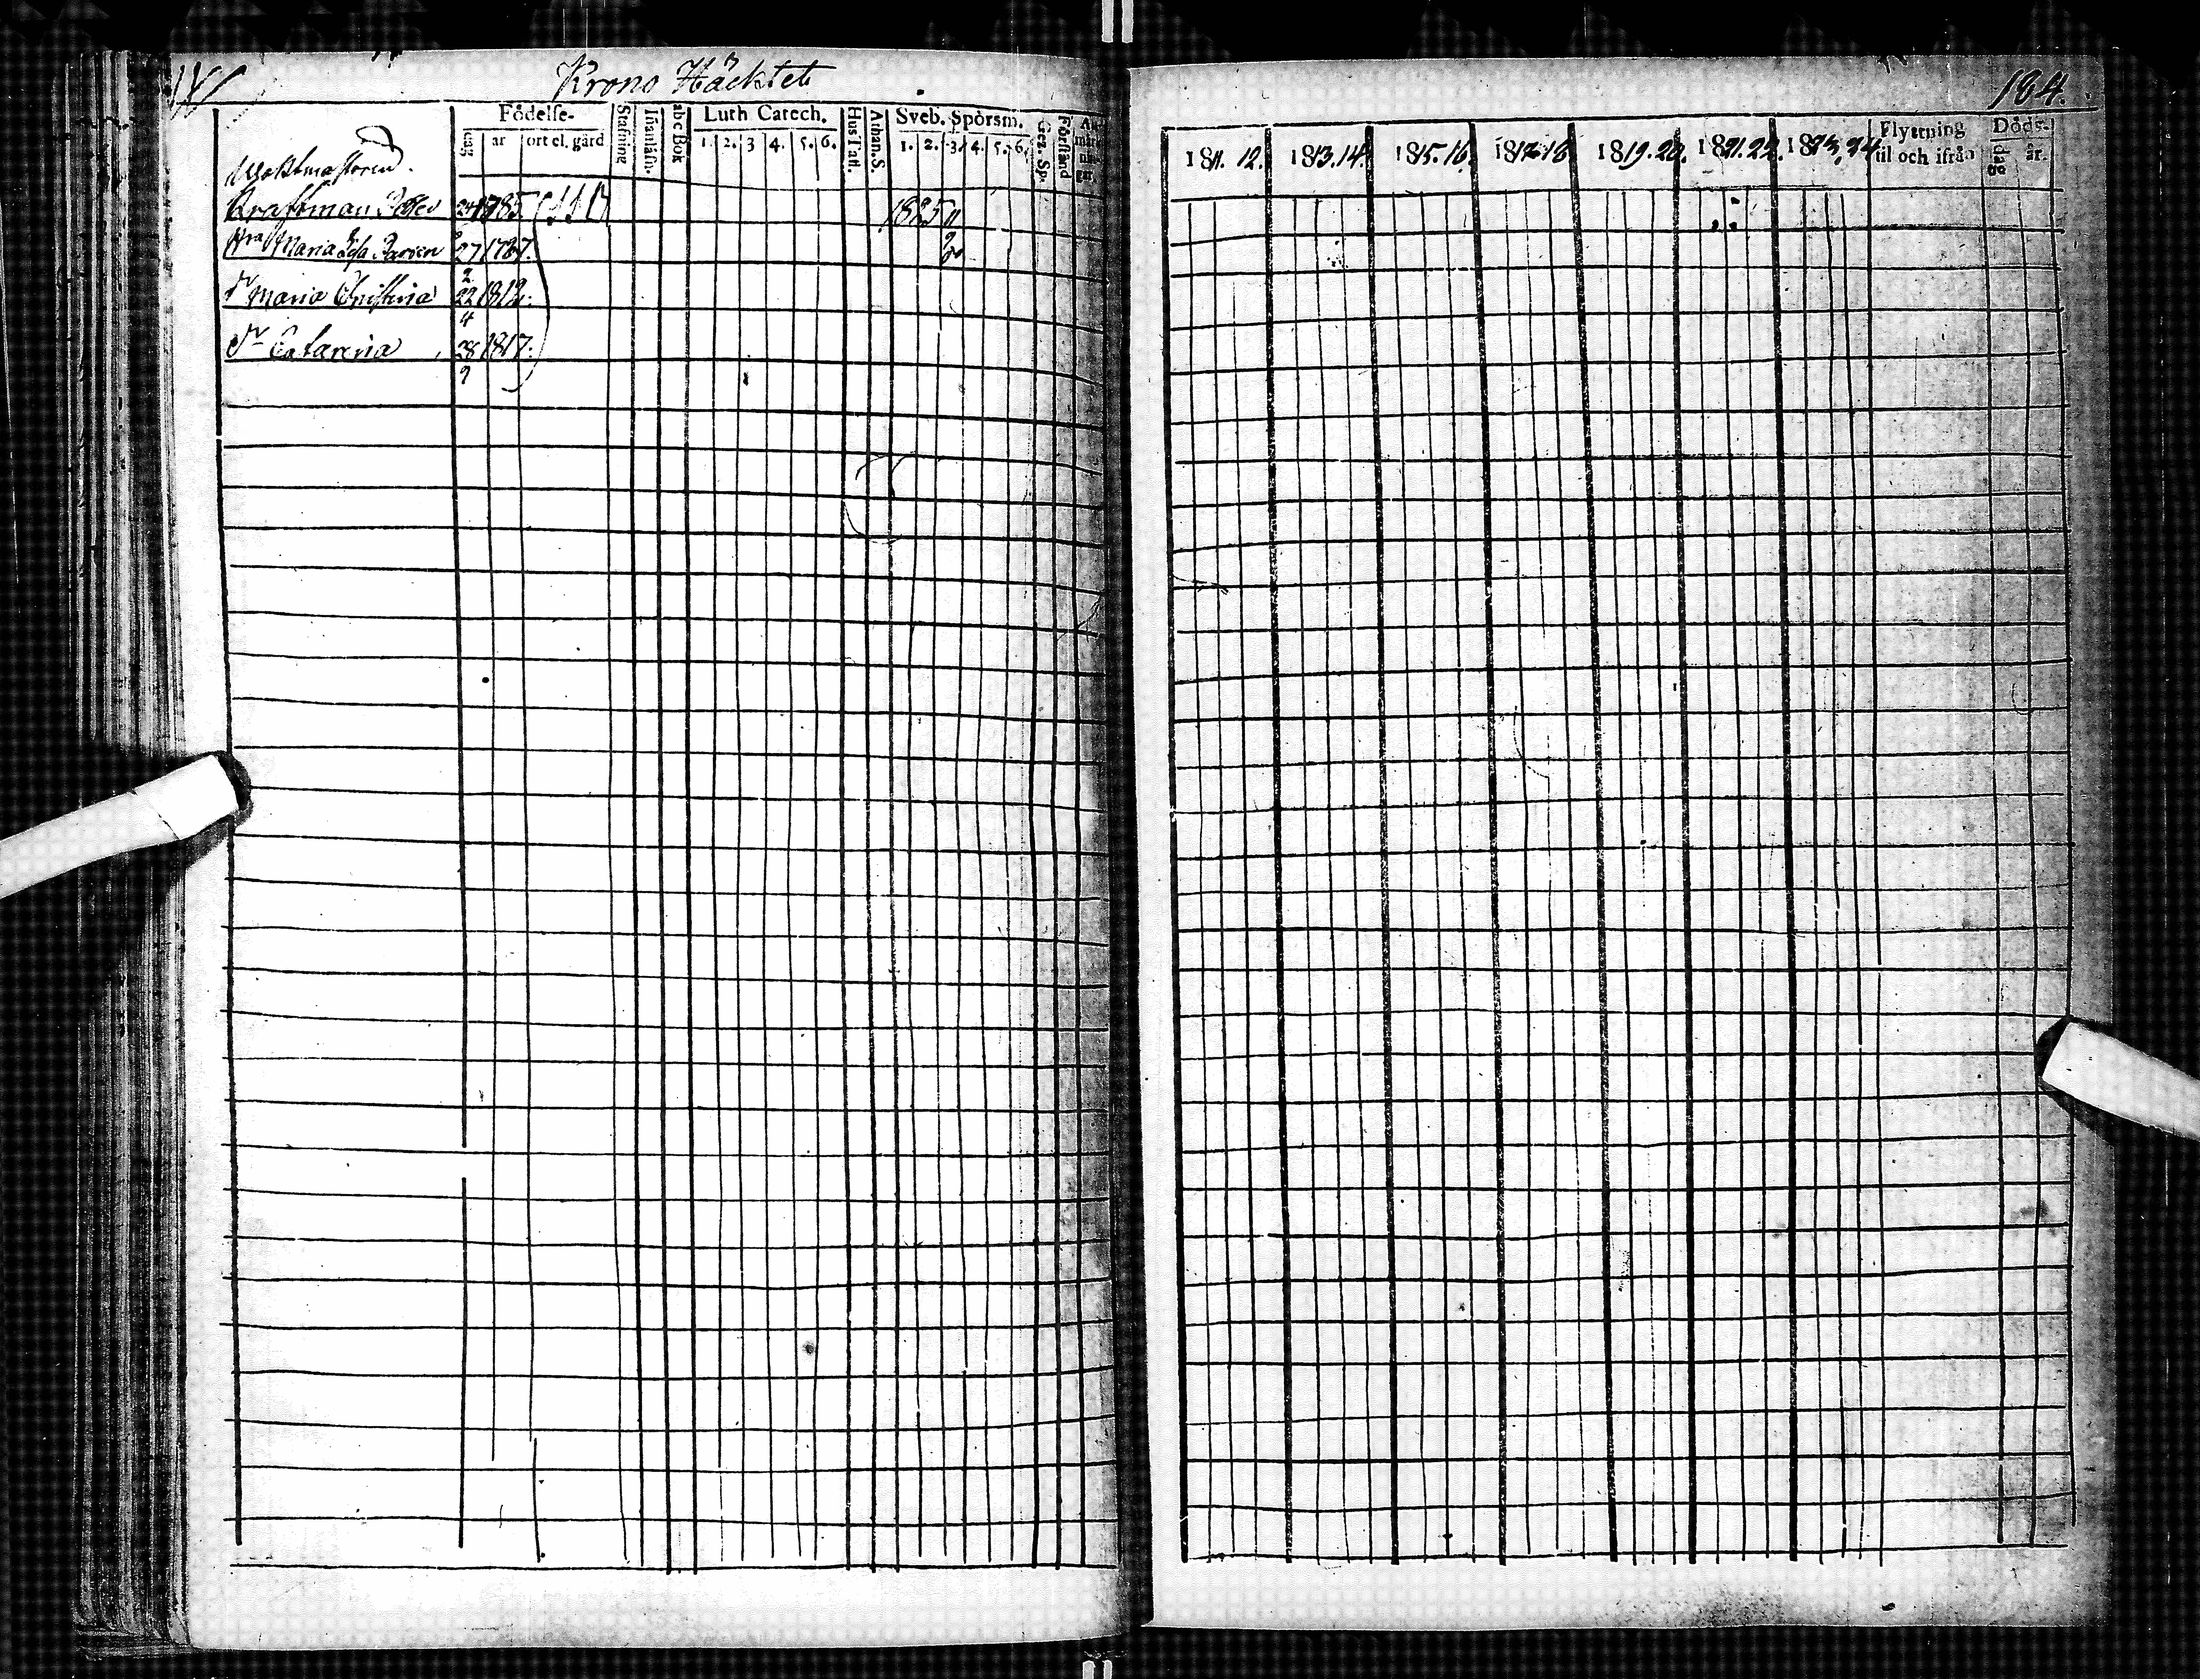 Krono Häcktet
184.
Födelse-
dag
år
ort el. gård
Stafning
Innanläsn.
abc Bok
Luth Catech.
1. 2. 3 4. 5. 6.
Hus Tafl.
Athan. S.
Sveb. Spörsm.
1. 2. 3. 4. 5. 6.
Gez. Sp.
Förstånd
1811. 12. 1813. 14. 1815. 16. 1817. 18 1819. 20. 1821. 22. 1823. 24
Flyttning
till och ifrån
Döds-
dag
år.
Kraftman 24 1785 1825 11
Maria 27 1787.
2
Maria Christina 22 1812.
4
Catarina 28 1817.
9